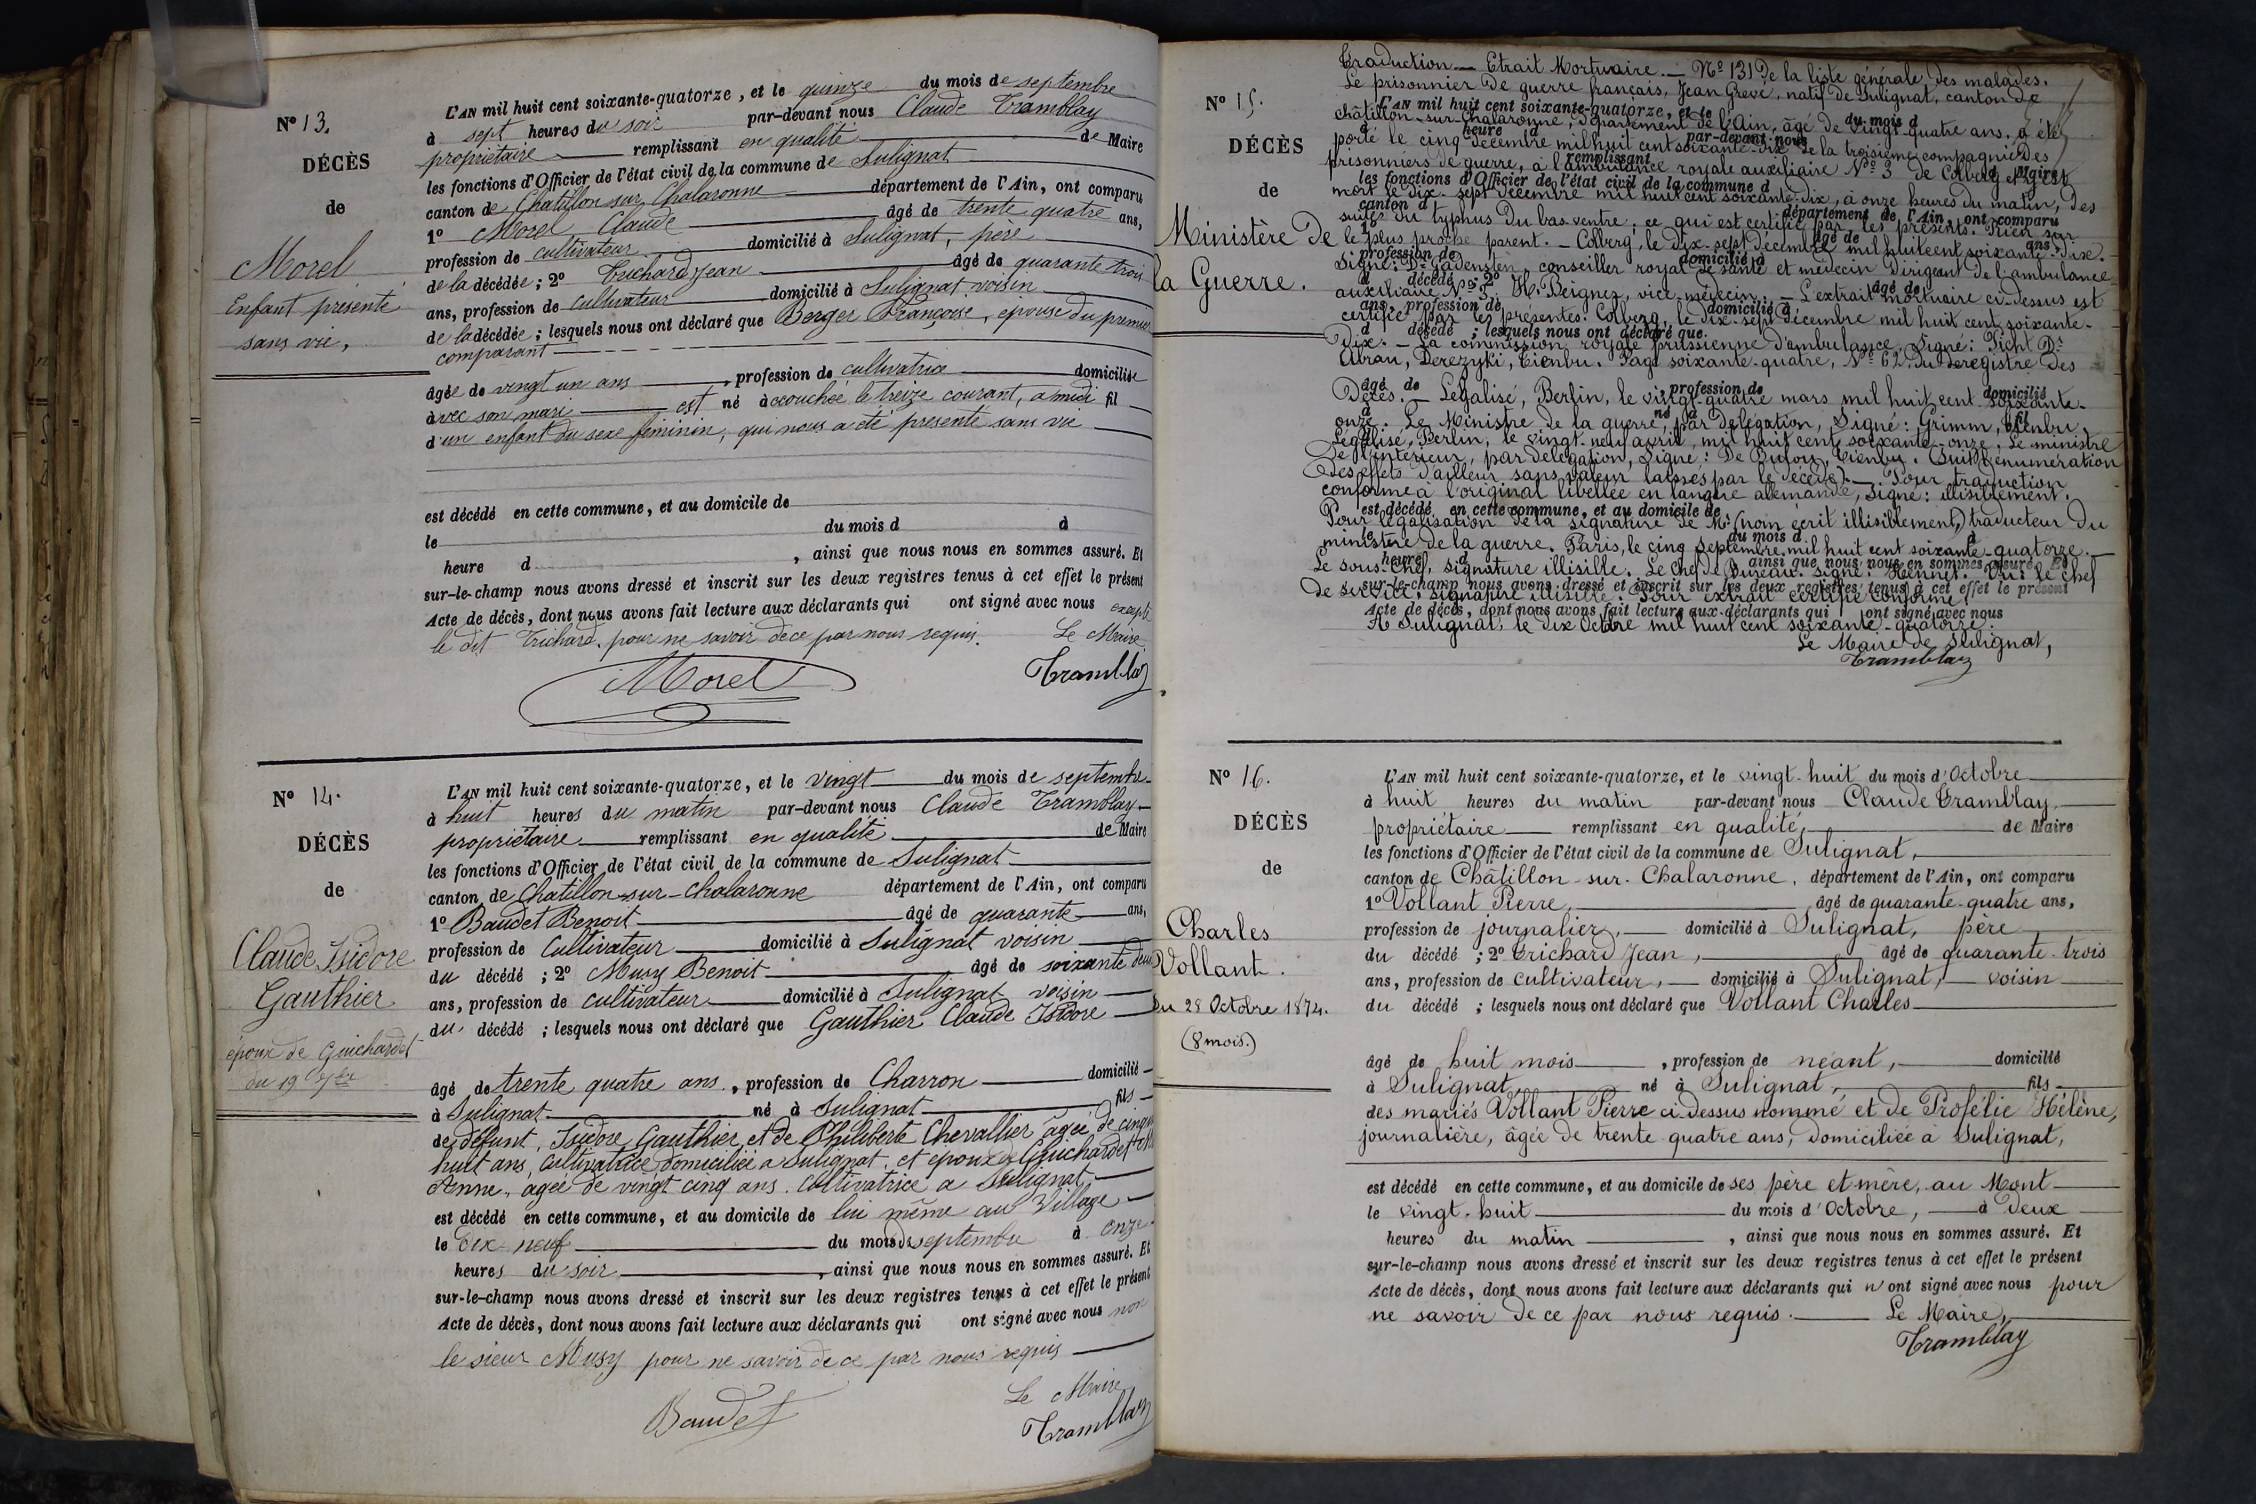 N° 13.
DÉCÈS
de
Morel
Enfant présenté
sans vie,
L'AN mil huit cent soixante-quatorze, et le quinze du mois de septembre
à sept heures du soir par-devant nous Claude Tramblay
propriétaire remplissant en qualité de Maire
les fonctions d'Officier de l'état civil de la commune de Sulignat
canton de Chatillon sur Chalaronne département de l'Ain, ont comparu
1° Morel Claude âgé de trente quatre ans,
profession de cultivateur domicilié à Sulignat, père
de la décédée ; 2° Trichard Jean âgé de quarante trois
ans, profession de cultivateur domicilié à Sulignat voisin
de la décédée ; lesquels nous ont déclaré que Berger Françoise, épouse du premier
comparant
âgée de vingt un ans, profession de cultivatrice domiciliée
avec son mari est né accouchée le treize courant, a midi fil
d'un enfant du sexe féminin, qui nous a été présenté sans vie
est décédé en cette commune, et au domicile de
le du mois d à
heure d , ainsi que nous nous en sommes assuré. Et
sur-le-champ nous avons dressé et inscrit sur les deux registres tenus à cet effet le présent
Acte de décès, dont nous avons fait lecture aux déclarants qui ont signé avec nous excepté
le dit Trichard, pour ne savoir de ce par nous requis. Le Maire
Morel Tramblay
N° 14.
DÉCÈS
de
Claude Isidore
Gauthier
époux de Guichardet
du 19 7bre
L'AN mil huit cent soixante-quatorze, et le vingt du mois de septembre
à huit heures du matin par-devant nous Claude Tramblay
propriétaire remplissant en qualité de Maire
les fonctions d'Officier de l'état civil de la commune de Sulignat
canton de Chatillon-sur-Chalaronne département de l'Ain, ont comparu
1° Baudet Benoit âgé de quarante ans,
profession de cultivateur domicilié à Sulignat voisin
du décédé ; 2° Musy Benoit âgé de soixante deux
ans, profession de cultivateur domicilié à Sulignat voisin
du décédé ; lesquels nous ont déclaré que Gauthier Claude Isidore
âgé de trente quatre ans, profession de Charron domicilié
à Sulignat né à Sulignat fils
de défunt Isidore Gauthier et de Philiberte Chevallier agée de cinqte
huit ans, cultivatrice domiciliée a Sulignat, et époux de Guichardet
Anne, agée de vingt cinq ans, cultivatrice a Sulignat
est décédé en cette commune, et au domicile de lui même au Village
le dix neuf du mois de septembre à onze
heures du soir, ainsi que nous nous en sommes assuré. Et
sur-le-champ nous avons dressé et inscrit sur les deux registres tenus à cet effet le présent
Acte de décès, dont nous avons fait lecture aux déclarants qui ont signé avec nous non
le sieur Musy pour ne savoir de ce par nous requis
Le Maire
Baudet Tramblay
N° 15.
DÉCÈS
de
Ministère de
la Guerre.
Traduction — Etrait Mortuaire. — N° 131 de la liste générale des malades.
Le prisonnier de guerre français, Jean Grevé, natif de Sulignat, canton de
L'AN mil huit cent soixante-quatorze, et le du mois d
châtillon-sur-chalaronne, département de l'Ain, âgé de vingt-quatre ans, a été
à heure d par-devant nous
porté le cinq décembre mil huit cent soixante-dix de la troisième compagnie des
remplissant de Maire
prisonniers de guerre, à l'ambulance royale auxiliaire N° 3 de Colberg et y est
les fonctions d'Officier de l'état civil de la commune d
mort le dix-sept décembre mil huit cent soixante-dix, à onze heures du matin, des
canton d département de l'Ain, ont comparu
suites du typhus du bas-ventre; ce qui est certifié par les présents. Rien sur
1° âgé de ans,
le plus proche parent. — Colberg, le dix-sept décembre mil huit cent soixante-dix.
profession de domicilié à
signé: Dr conseiller royal de santé et médecin dirigeant de l'ambulance
d décédé ; 2° âgé de
auxiliaire N° 3. vice-médecin. — L'extrait mortuaire ci-dessus est
ans, profession de domicilié à
certifié par les présentes. Colberg, le dix-sept décembre mil huit cent soixante-
d décédé ; lesquels nous ont déclaré que
dix. — La commission royale prussienne d'ambulance, Signé: Dr
Page soixante-quatre, N° 62 du registre des
âgé de profession de domicilié
Décès. — Légalisé, Berlin, le vingt-quatre mars mil huit cent soixante-
à né à fil
onze. Le Ministre de la guerre, par délégation, Signé: Grimm,
Légalisé, Berlin, le vingt-neuf avril, mil huit cent soixante-onze. Le ministre
de l'intérieur, par délégation, Signé: (Suit l'énumération
des effets d'ailleurs sans valeur laissés par le décédé). — Pour traduction
conforme à l'original libellée en langue allemande, signé: illisiblement.
est décédé en cette commune, et au domicile de
Pour légalisation de la signature de Mr (nom écrit illisiblement) traducteur du
le du mois d à
ministère de la guerre. Paris, le cinq septembre mil huit cent soixante-quatorze. —
heure d ainsi que nous nous en sommes assuré. Et
Le sous-chef, signature illisible. Le chef de Bureau. signé: Hennet. Vu: le chef
sur-le-champ nous avons dressé et inscrit sur les deux registres tenus à cet effet le présent
de service, signature illisible. Pour extrait certifié conforme.
Acte de décès, dont nous avons fait lecture aux déclarants qui ont signé avec nous
A Sulignat, le dix octobre mil huit cent soixante-quatorze.
Le Maire de Sulignat,
Tramblay
N° 16.
DÉCÈS
de
Charles
Vollant.
Du 28 Octobre 1874.
(8 mois.)
L'AN mil huit cent soixante-quatorze, et le vingt-huit du mois d'Octobre
à huit heures du matin par-devant nous Claude Tramblay,
propriétaire remplissant en qualité, de Maire
les fonctions d'Officier de l'état civil de la commune de Sulignat,
canton de Châtillon-sur-Chalaronne, département de l'Ain, ont comparu
1° Vollant Pierre, âgé de quarante-quatre ans,
profession de journalier, domicilié à Sulignat, père
du décédé ; 2° Trichard Jean, âgé de quarante-trois
ans, profession de cultivateur, domicilié à Sulignat, voisin
du décédé ; lesquels nous ont déclaré que Vollant Charles
âgé de huit mois, profession de néant, domicilié
à Sulignat, né à Sulignat, fils
des mariés Vollant Pierre ci-dessus nommé et de Profélie Hélène,
journalière, âgée de trente quatre ans, domiciliée à Sulignat,
est décédé en cette commune, et au domicile de ses père et mère, au Mont
le vingt-huit du mois d'Octobre, à deux
heures du matin, ainsi que nous nous en sommes assuré. Et
sur-le-champ nous avons dressé et inscrit sur les deux registres tenus à cet effet le présent
Acte de décès, dont nous avons fait lecture aux déclarants qui n'ont signé avec nous pour
ne savoir de ce par nous requis. Le Maire,
Tramblay